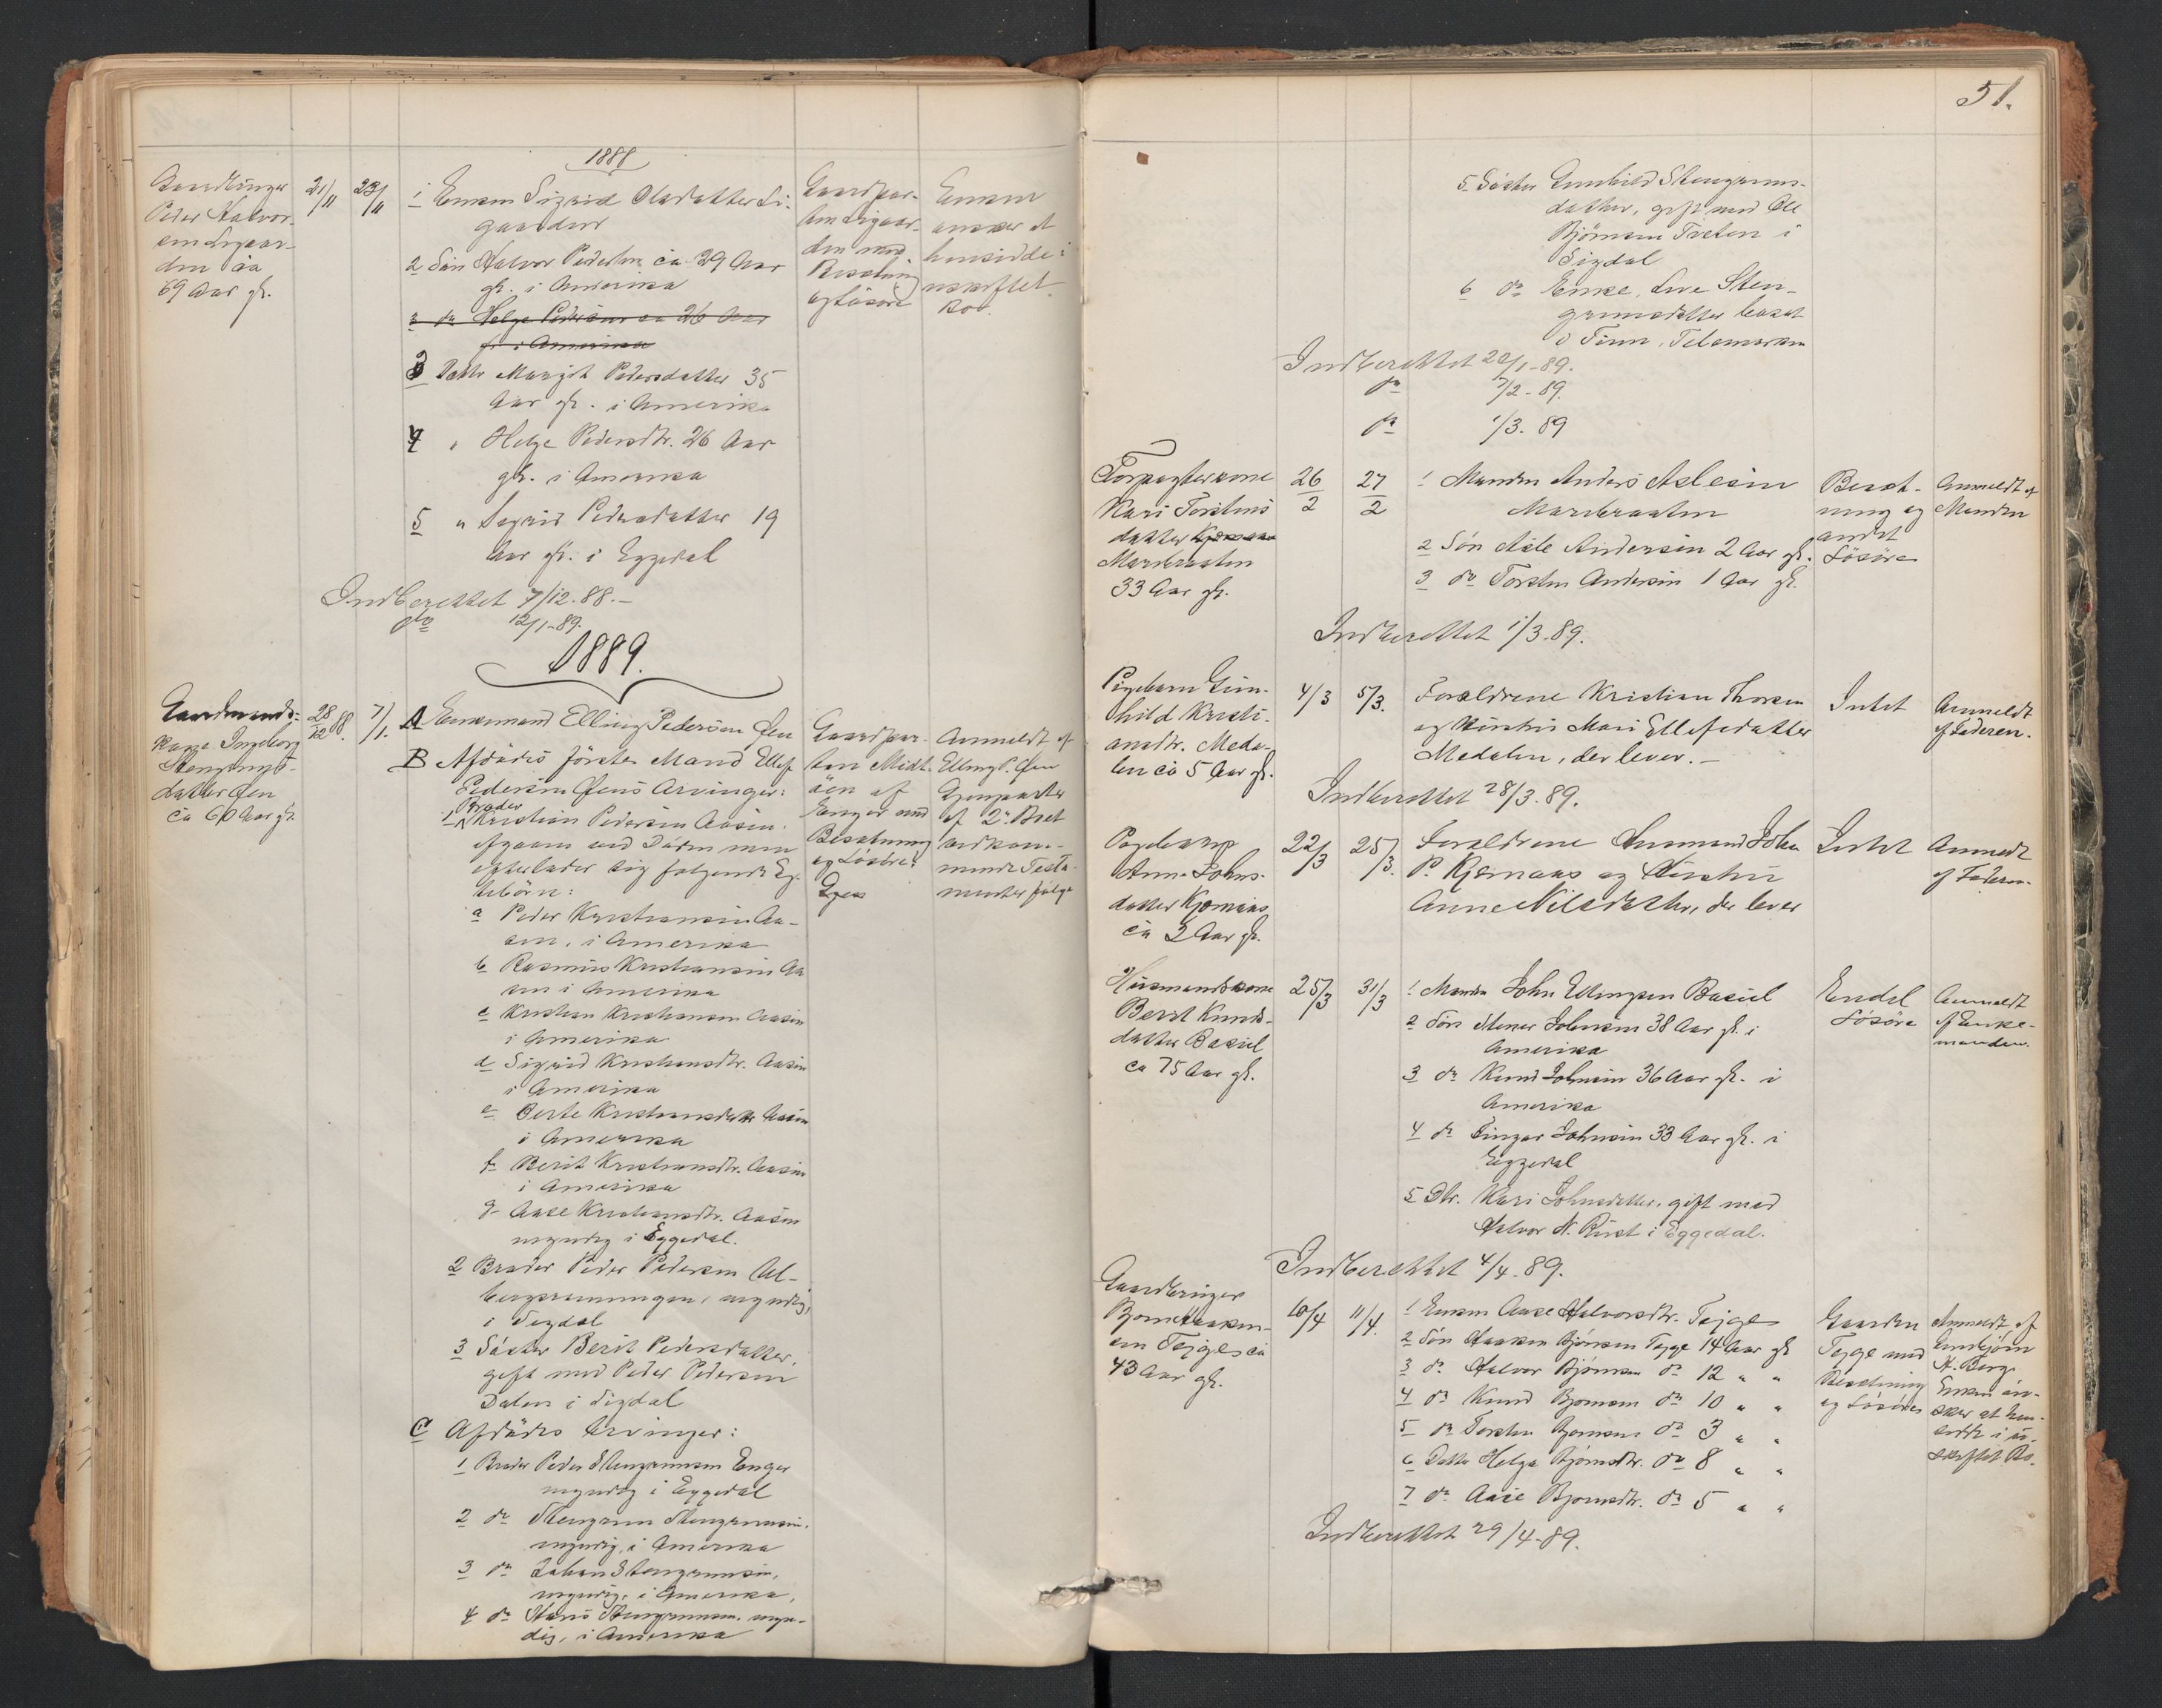 1888
Gaardbruger
Peder Halvor-
sen Ligaar-
den ca
69 Aar gl.
21/11
23/11
1 Enken Sigrid Olsdatter Li-
gaarden
2 Søn Halvor Pedersen ca 39 Aar
gl. i Amerika
3 do Helge Pedersen ca 26 Aar
gl. i Amerika
3 Datter Margit Pedersdatter 35
Aar gl. i Amerika
4 " Helge Pedersdtr. 26 Aar
gl. i Amerika
5 " Sigrid Pedersdatter 19
Aar gl. i Eggedal
Gaardpar-
ten Ligaar-
den med
Besætning
og Løsøre
Enken
ønsker at
hensidde i
uskiftet
Bo.
Indberettet 7/12-88.-
do 12/1-89.
1889.
Gaardmands-
kone Ingeborg
Stengrims-
datter Øen
ca 60 Aar gl.
28/12 88.
7/1.
A Enkemand Elling Pedersen Øen
B Afdødes første Mand Ellef
Pedersen Øens Arvinger:
1 Broder Kristian Pedersen Aasen
afgaaen ved Døden men
efterlader sig følgende Eg-
tebørn:
a Peder Kristiansen Aa-
sen, i Amerika
b Rasmus Kristiansen Aa
sen i Amerika
c Kristian Kristiansen Aasen
i Amerika
d Sigrid Kristiansdtr. Aasen
i Amerika
e Berte Kristiansdatter Aasen
i Amerika
f Berit Kristiansdtr. Aasen
i Amerika
g Aase Kristiansdtr. Aasen
myndig i Eggedal.
2 Broder Peder Pedersen Al-
bergsrønningen, myndig,
i Sigdal
3 Søster Berit Pedersdatter,
gift med Peder Pedersen
Dalen i Sigdal
C Afdødes Arvinger:
1 Broder Peder Stengrimsen Enger
myndig i Eggedal
2 do Stengrim Stengrimsen,
myndig, i Amerika
3 do Johan Stengrimsen,
myndig, i Amerika,
4 do Hans Stengrimsen, myn-
dig, i Amerika
Gaardpar-
ten Midt-
øen af
Enger med
Besætning
og Løsøre
Anmeldt af
Elling P. Øen
Gjenparter
af 2de Bret
vedkom-
mende Testa-
menter følge
51.
5 Søster Gunhild Stengrims-
datter, gift med Ole
Bjørnsen Træten i
Sigdal
6 do Enke, Live Sten-
grimsdatter bosat
i Tinn, Telemarken
Indberettet 22/1-89.
do 7/2-89.
do 1/3-89
Forpagterkone
Kari Torstens
datter
Marebraaten
33 Aar gl.
26/2
27/2
1 Manden Anders Aslesen
Marebraaten
2 Søn Asle Andersen 2 Aar gl.
3 do Torsten Andersen 1 Aar gl.
Besæt-
ning og
andet
Løsøre
Anmeldt af
Manden
Indberettet 1/3-89.
Pigebarn Gun-
hild Kristi-
ansdtr. Meda-
len ca 5 Aar gl.
4/3
5/3.
Forældrene Kristian Thorsen
og Hustru Mari Ellefsdatter
Medalen, der lever.-
Intet
Anmeldt
af Faderen.
Indberettet 28/3.89.
Pigebarn
Anne Johns-
datter Kjomaas
ca 3 Aar gl.
22/3
25/3.
Forældrene Husmand John
P. Kjomaas og Hustru
Anne Nilsdatter, der lever
Intet
Anmeldt
af Faderen
Husmandskone
Berit Knuds-
datter Basiel
ca 75 Aar gl.
25/3
31/3
1 Manden John Ellingsen Basiel
2 Søn Stener Johnsen 38 Aar gl. i
Amerika
3 do Knud Johnsen 36 Aar gl. i
Amerika
4 do Gunnar Johnsen 33 Aar gl. i
Eggedal
5 Dtr. Kari Johnsdatter, gift med
Halvor N. Rust i Eggedal.
Endel
Løsøre
Anmeldt
af Enke-
manden.
Indberettet 4/4.89.
Gaardbruger
Bjørn Haaken-
sen Teige ca
43 Aar gl.
10/4
11/4.
1 Enken Aase Halvorsdtr. Teige
2 Søn Haaken Bjørnsen Teige 14 Aar gl
3 do Halvor Bjørnsen do 12 " "
4 do Knud Bjørnsen do 10 " "
5 do Torsten Bjørnsen do 3 " "
6 Datter Helga Bjørnsdtr. do 8 " "
7 do Aase Bjørnsdtr. do 5 " "
Gaarden
Teige med
Besætning
og Løsøre
Anmeldt af
Gudbjørn
H. Berg.
Enken øn-
sker at hen-
sidde i u-
skiftet Bo.
Indberettet 29/4-89.